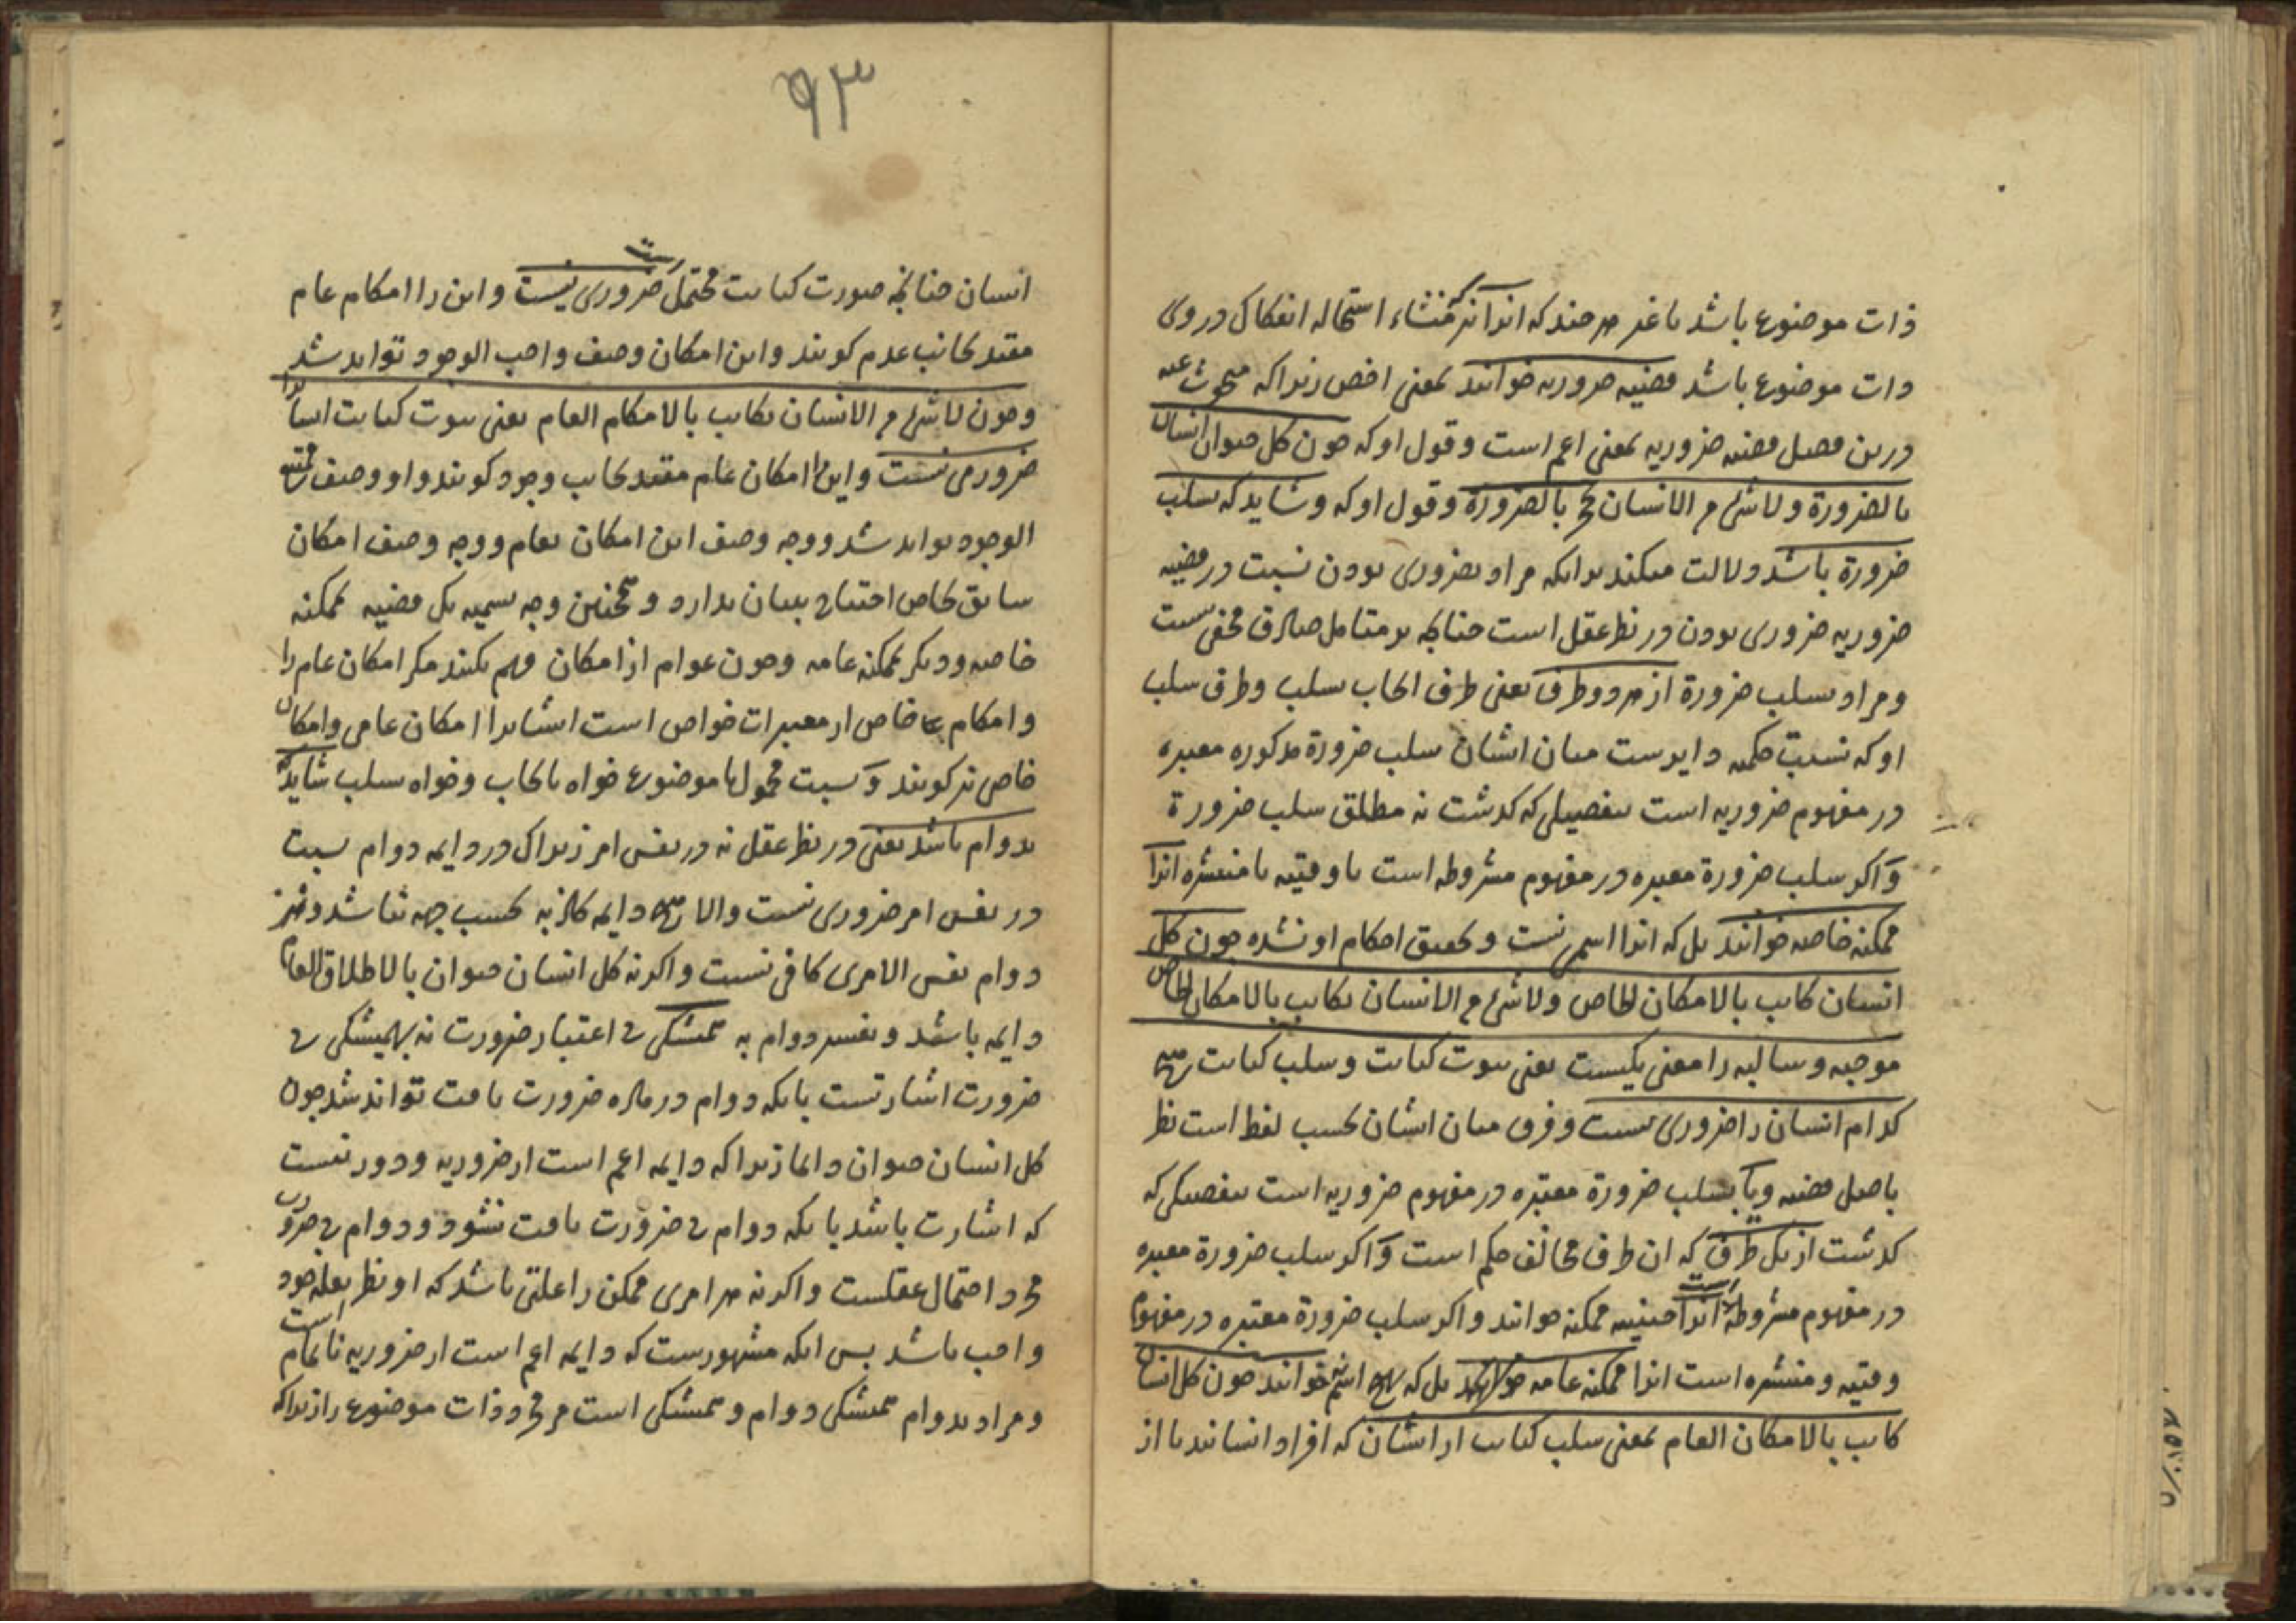 ذات موضوع باشد یا غیر هر چند که انرا نیز که منشاء استحاله انفکاک در وی
ذات موضوع باشد قضیه ضروریه خوانند بمعنی اخص زیرا که مبحوث عنه
درین فصل قضیه ضروریه بمعنی اعم است و قول او که چون کل حیوان انسان
بالضرورة ولا شیء من الانسان بحجر بالضرورة و قول او که و شاید که بسلب
ضرورة باشد دلالت میکند برانکه مراد بضروری بودن نسبت در قضیه
ضروریه ضروری بودن در نظر عقل است چنانکه بر متامل صادق مخفی نیست
و مراد بسلب ضرورة از هر دو طرف یعنی طرف ایجاب سلب و طرف سلب
او که نسبت حکمیه دایرست میان ایشان سلب ضرورة مذکوره معتبره
در مفهوم ضروریه است بتفصیلی که گذشت نه مطلق سلب ضرورة
و اگر سلب ضرورة معتبره در مفهوم مشروطه است یا وقتیه یا منتشره انرا
ممکنه خاصه خوانند بل که انرا اسمی نیست و تحقیق احکام او نشده چون کل
انسان کاتب بالامکان الخاص ولا شیء من الانسان بکاتب بالامکان الخاص
موجبه و سالبه را معنی یکیست یعنی ثبوت کتابت و سلب کتابت هیچ
کدام انسان را ضروری نیست و فرق میان ایشان بحسب لفظ است نظر
باصل قضیه و یا بسلب ضرورة معتبره در مفهوم ضروریه است بتفصیلی که
گذشت از یک طرف که ان طرف مخالف حکم است و اگر سلب ضرورة معتبره
در مفهوم مشروطه است انرا حینیه ممکنه خوانند و اگر سلب ضرورة معتبره در مفهوم
وقتیه و منتشره است انرا ممکنه عامه بل که هیچ اسم خوانند چون کل انسان
کاتب بالامکان العام بمعنی سلب کتابت از ایشان که افراد انسانند یا از
۹۳
انسان چنانچه صورت کتابت محتمل است ضروری نیست و این را امکام عام
مقید بجانب عدم گویند و این امکان وصف واجب الوجود تواند شد
و چون لا شیء من الانسان بکاتب بالامکام العام یعنی ثبوت کتابت انسانرا
ضروری نیست و این را امکان عام مقید بجانب وجود گویند و او وصف ممتنع
الوجود تواند شد و وجه وصف این امکان بعام و وجه وصف امکان
سابق بخاص احتیاج ببیان ندارد و همچنین وجه تسمیه یک قضیه ممکنه
خاصه و دیگر ممکنه عامه و چون عوام از امکان فهم نکنند مگر امکان عام را
و امکام خاص از معتبرات خواص است ایشانرا امکان عامی و امکان
خاص نیز گویند و نسبت محمول با موضوع خواه بایجاب و خواه سلب شاید که
بدوام باشد یعنی در نظر عقل نه در نفس امر زیرا که در دایمه دوام نسبت
در نفس امر ضروری نیست والا هیچ دایمه کاذبه بحسب جهه نباشد و نیز
دوام نفس الامری کافی نیست و اگرنه کل انسان حیوان بالاطلاق العام
دایمه باشد و تفسیر دوام به همیشگی بی اعتبار ضرورت نه بهمیشگی بی
ضرورت اشارتست بانکه دوام در ماده ضرورت یافت تواند شد چون
کل انسان حیوان دائما زیرا که دایمه اعم است از ضروریه و دور نیست
که اشارت باشد بانکه دوام بی ضرورت یافت نشود و دوام بی ضرورت
مجرد احتمال عقلست و اگرنه هر امری ممکن را علتی باشد که او نظر بعله خود
واجب باشد پس انکه مشهورست که دایمه اعم است از ضروریه ناتمام است
و مراد بدوام همیشگی دوام و همیشگی است مر وجود ذات موضوع را زیرا که